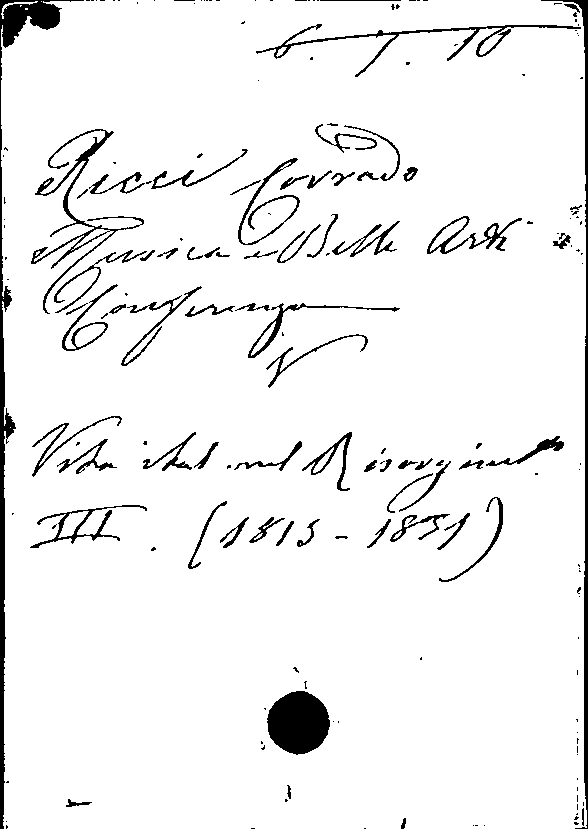 6. 7. 10
Ricci Corrado
Musica e Belle Arti
Conferenza
V
Vita ital. nel Risorgimto
III. (1815 - 1831)